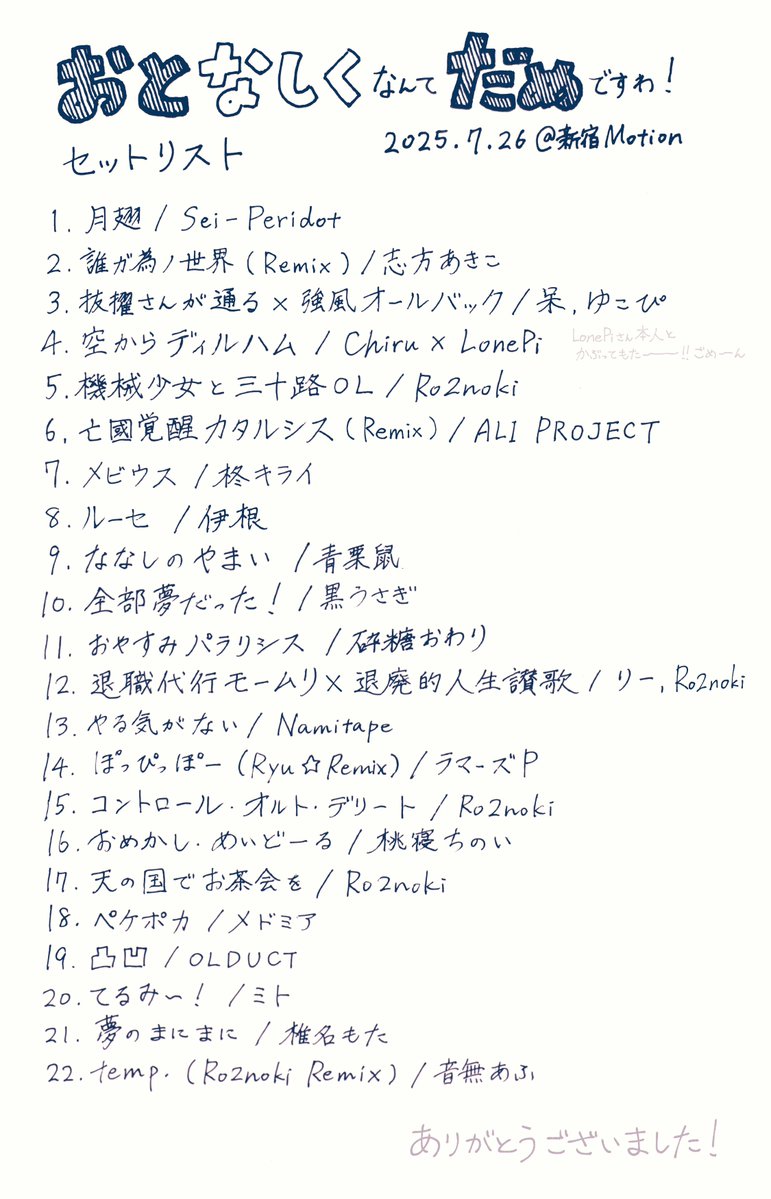 おとなしくなんてだめですわ！
2025.7.26 @新宿Motion
セットリスト
1. 月翅 / Sei-Peridot
2. 誰ガ為ノ世界 (Remix) / 志方あきこ
3. 抜擢さんが通る × 強風オールバック / 呆, ゆこぴ
4. 空からディルハム / Chiru × LonePi
LonePiさん本人と
かぶってもたーーー!! ごめーん
5. 機械少女と三十路OL / Ro2noki
6. 亡國覚醒カタルシス (Remix) / ALI PROJECT
7. メビウス / 柊キライ
8. ルーセ / 伊根
9. ななしのやまい / 青栗鼠
10. 全部夢だった! / 黒うさぎ
11. おやすみパラリシス / 砕糖おわり
12. 退職代行モームリ × 退廃的人生讃歌 / リー, Ro2noki
13. やる気がない / Namitape
14. ぽっぴっぽー (Ryu☆Remix) / ラマーズP
15. コントロール・オルト・デリート / Ro2noki
16. おめかし・めいどーる / 桃寝ちのい
17. 天の国でお茶会を / Ro2noki
18. ペケポカ / メドミア
19. 凸凹 / OLDUCT
20. てるみ〜! / ミト
21. 夢のまにまに / 椎名もた
22. temp. (Ro2noki Remix) / 音無あふ
ありがとうございました!